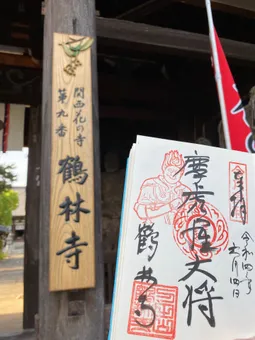 関西花の寺
第九番
鶴林寺
奉拝
摩虎羅大将
鶴林寺
令和四年
六月四日